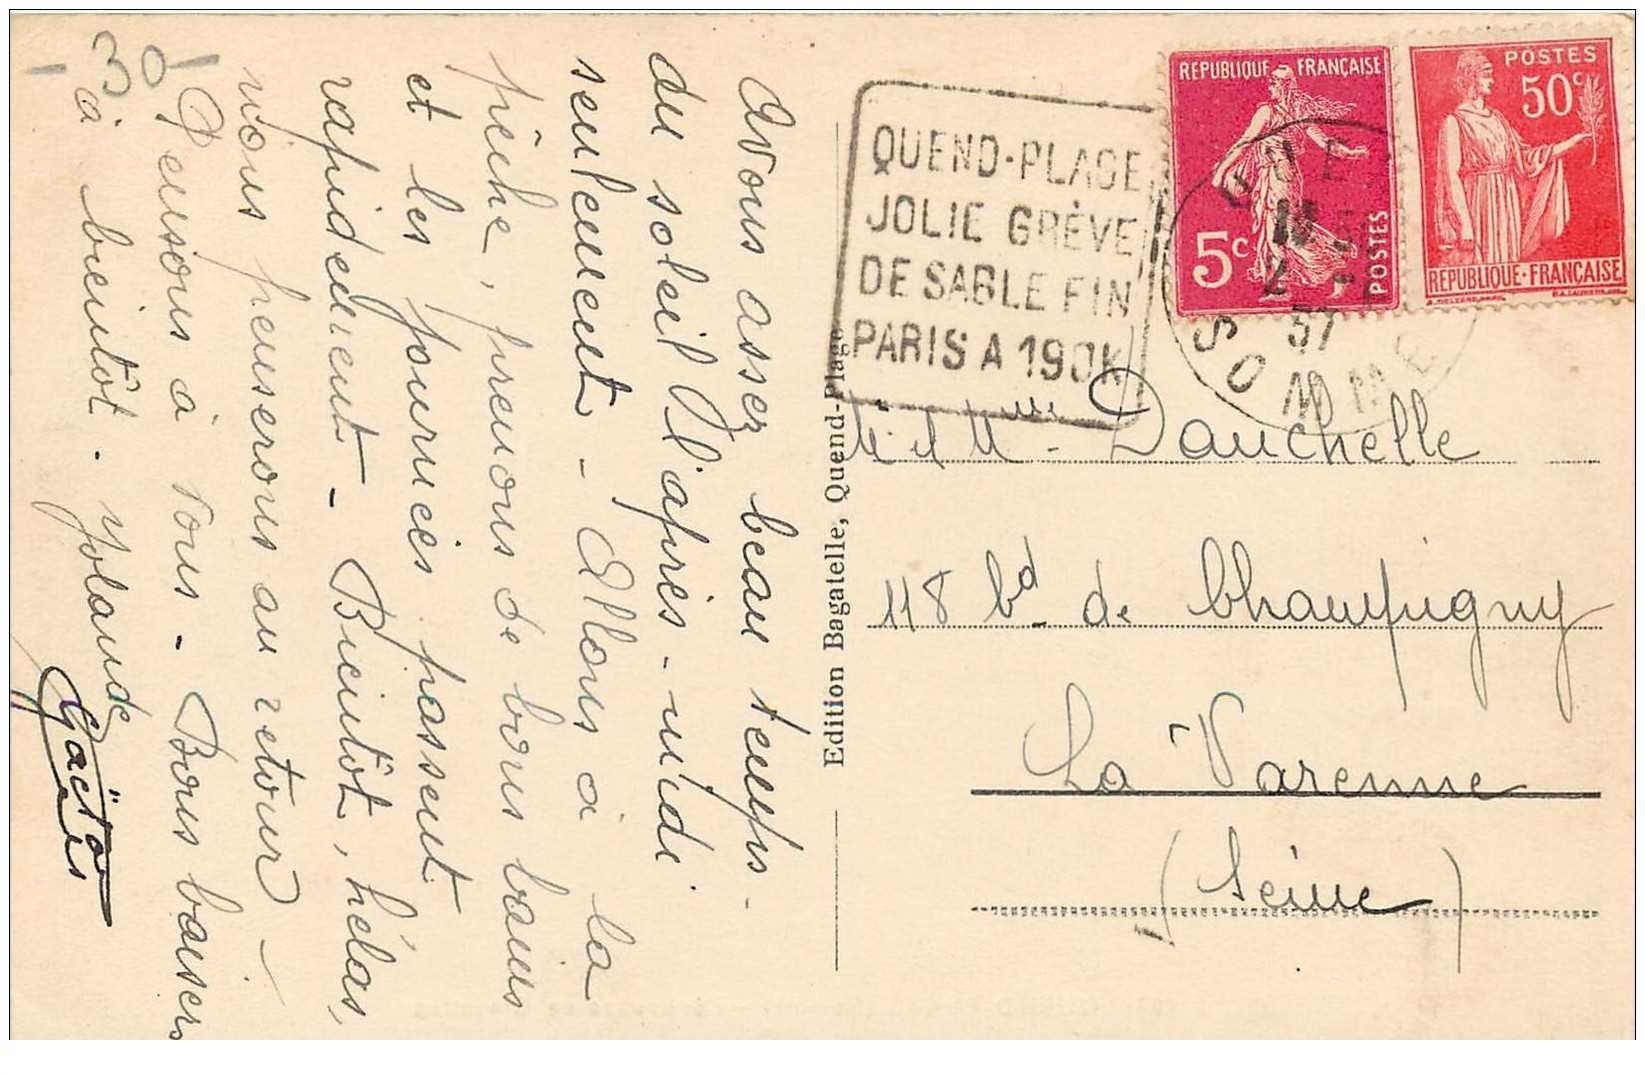 -30-
Avons assez beau temps -
du soleil l'après-midi
seulement - Allons à la
pêche, prenons de bons bains
et les journées passent
rapidement - Bientôt, hélas,
nous penserons au retour -
Pensons à vous - Bons baisers
à bientôt - Yolande
Gaëtan
Edition Bagatelle, Quend-Plage
QUEND-PLAGE
JOLIE GRÈVE
DE SABLE FIN
PARIS A 190K
REPUBLIQUE FRANÇAISE
5c
POSTES
POSTES
50c
REPUBLIQUE-FRANÇAISE
QUE
37
SOMME
Dauchelle
118 bd de Champigny
La Varenne
(Seine)